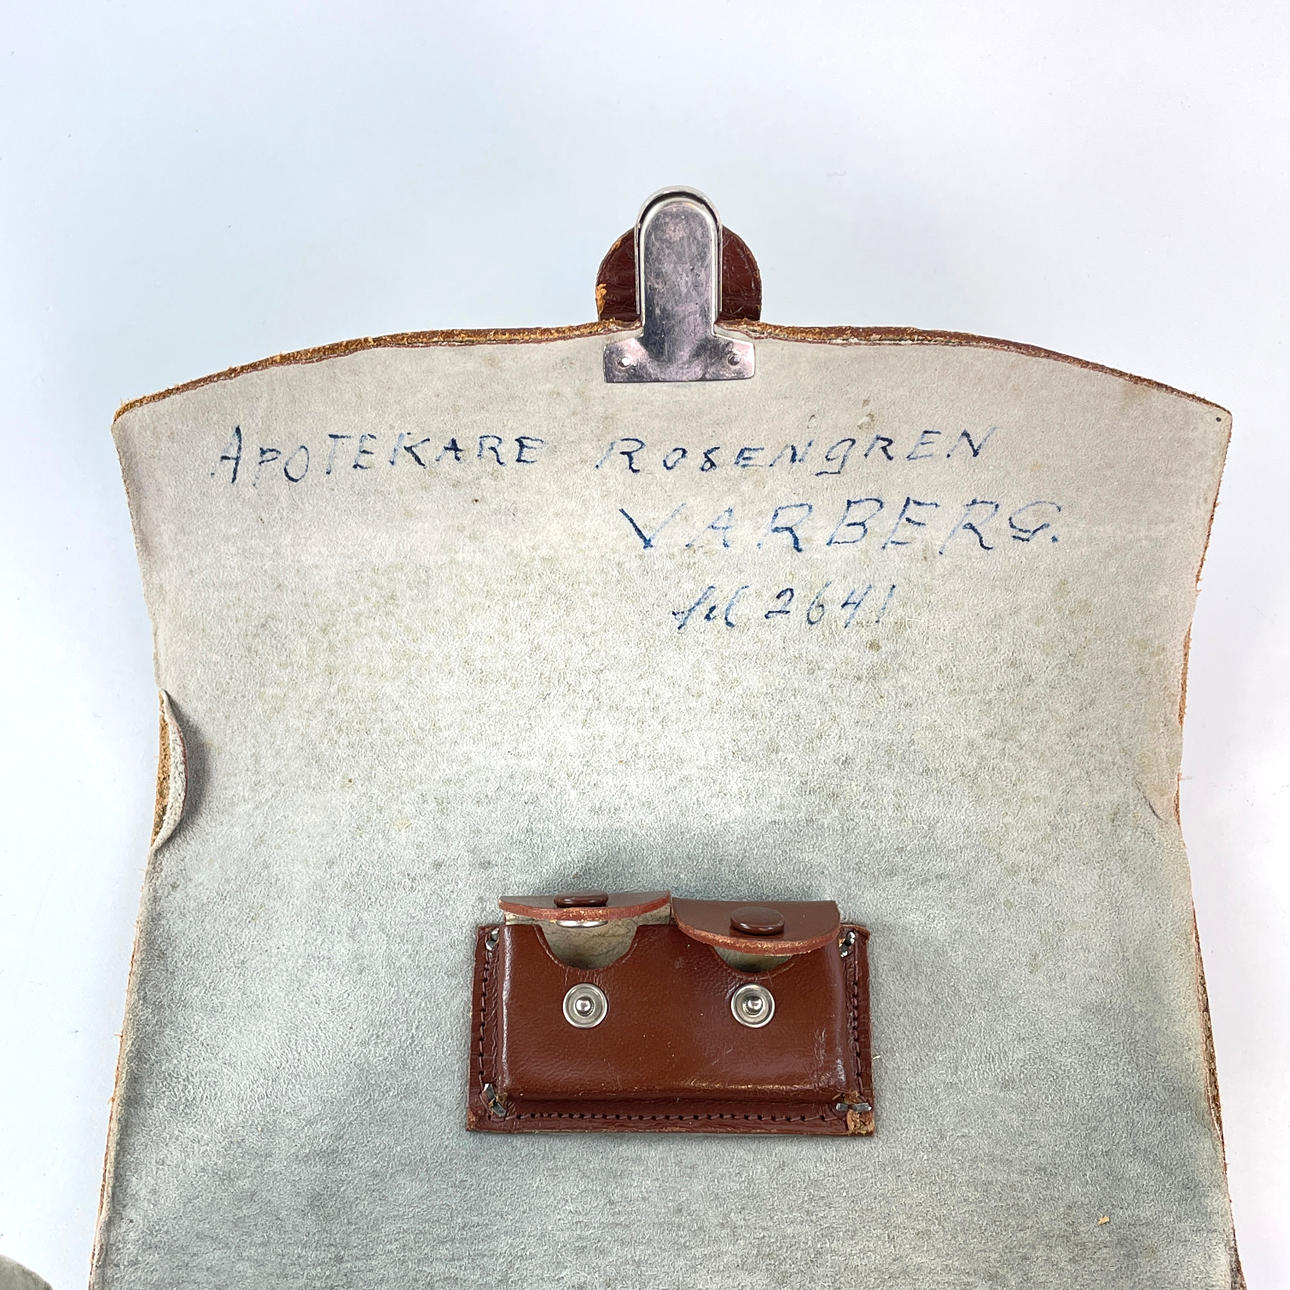 APOTEKARE ROSENGREN
VARBERG.
tel 2641